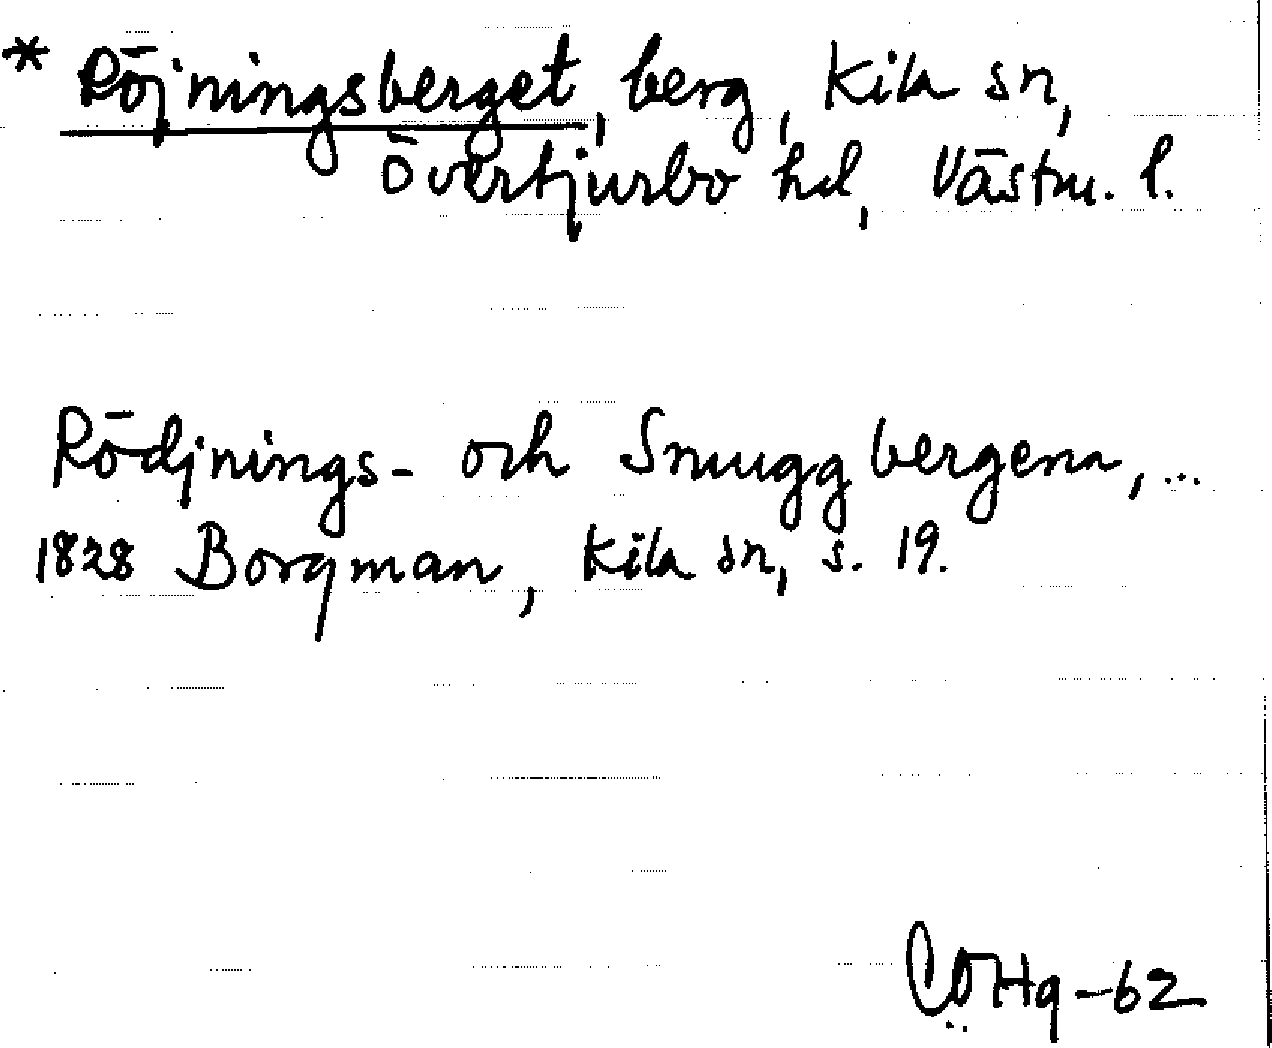 * Röjningsberget, berg, Kila sn,
Övertjurbo hd, Västm. l.
Rödjnings- och Snuggbergena, ...
1828 Borgman, Kila sn, s. 19.